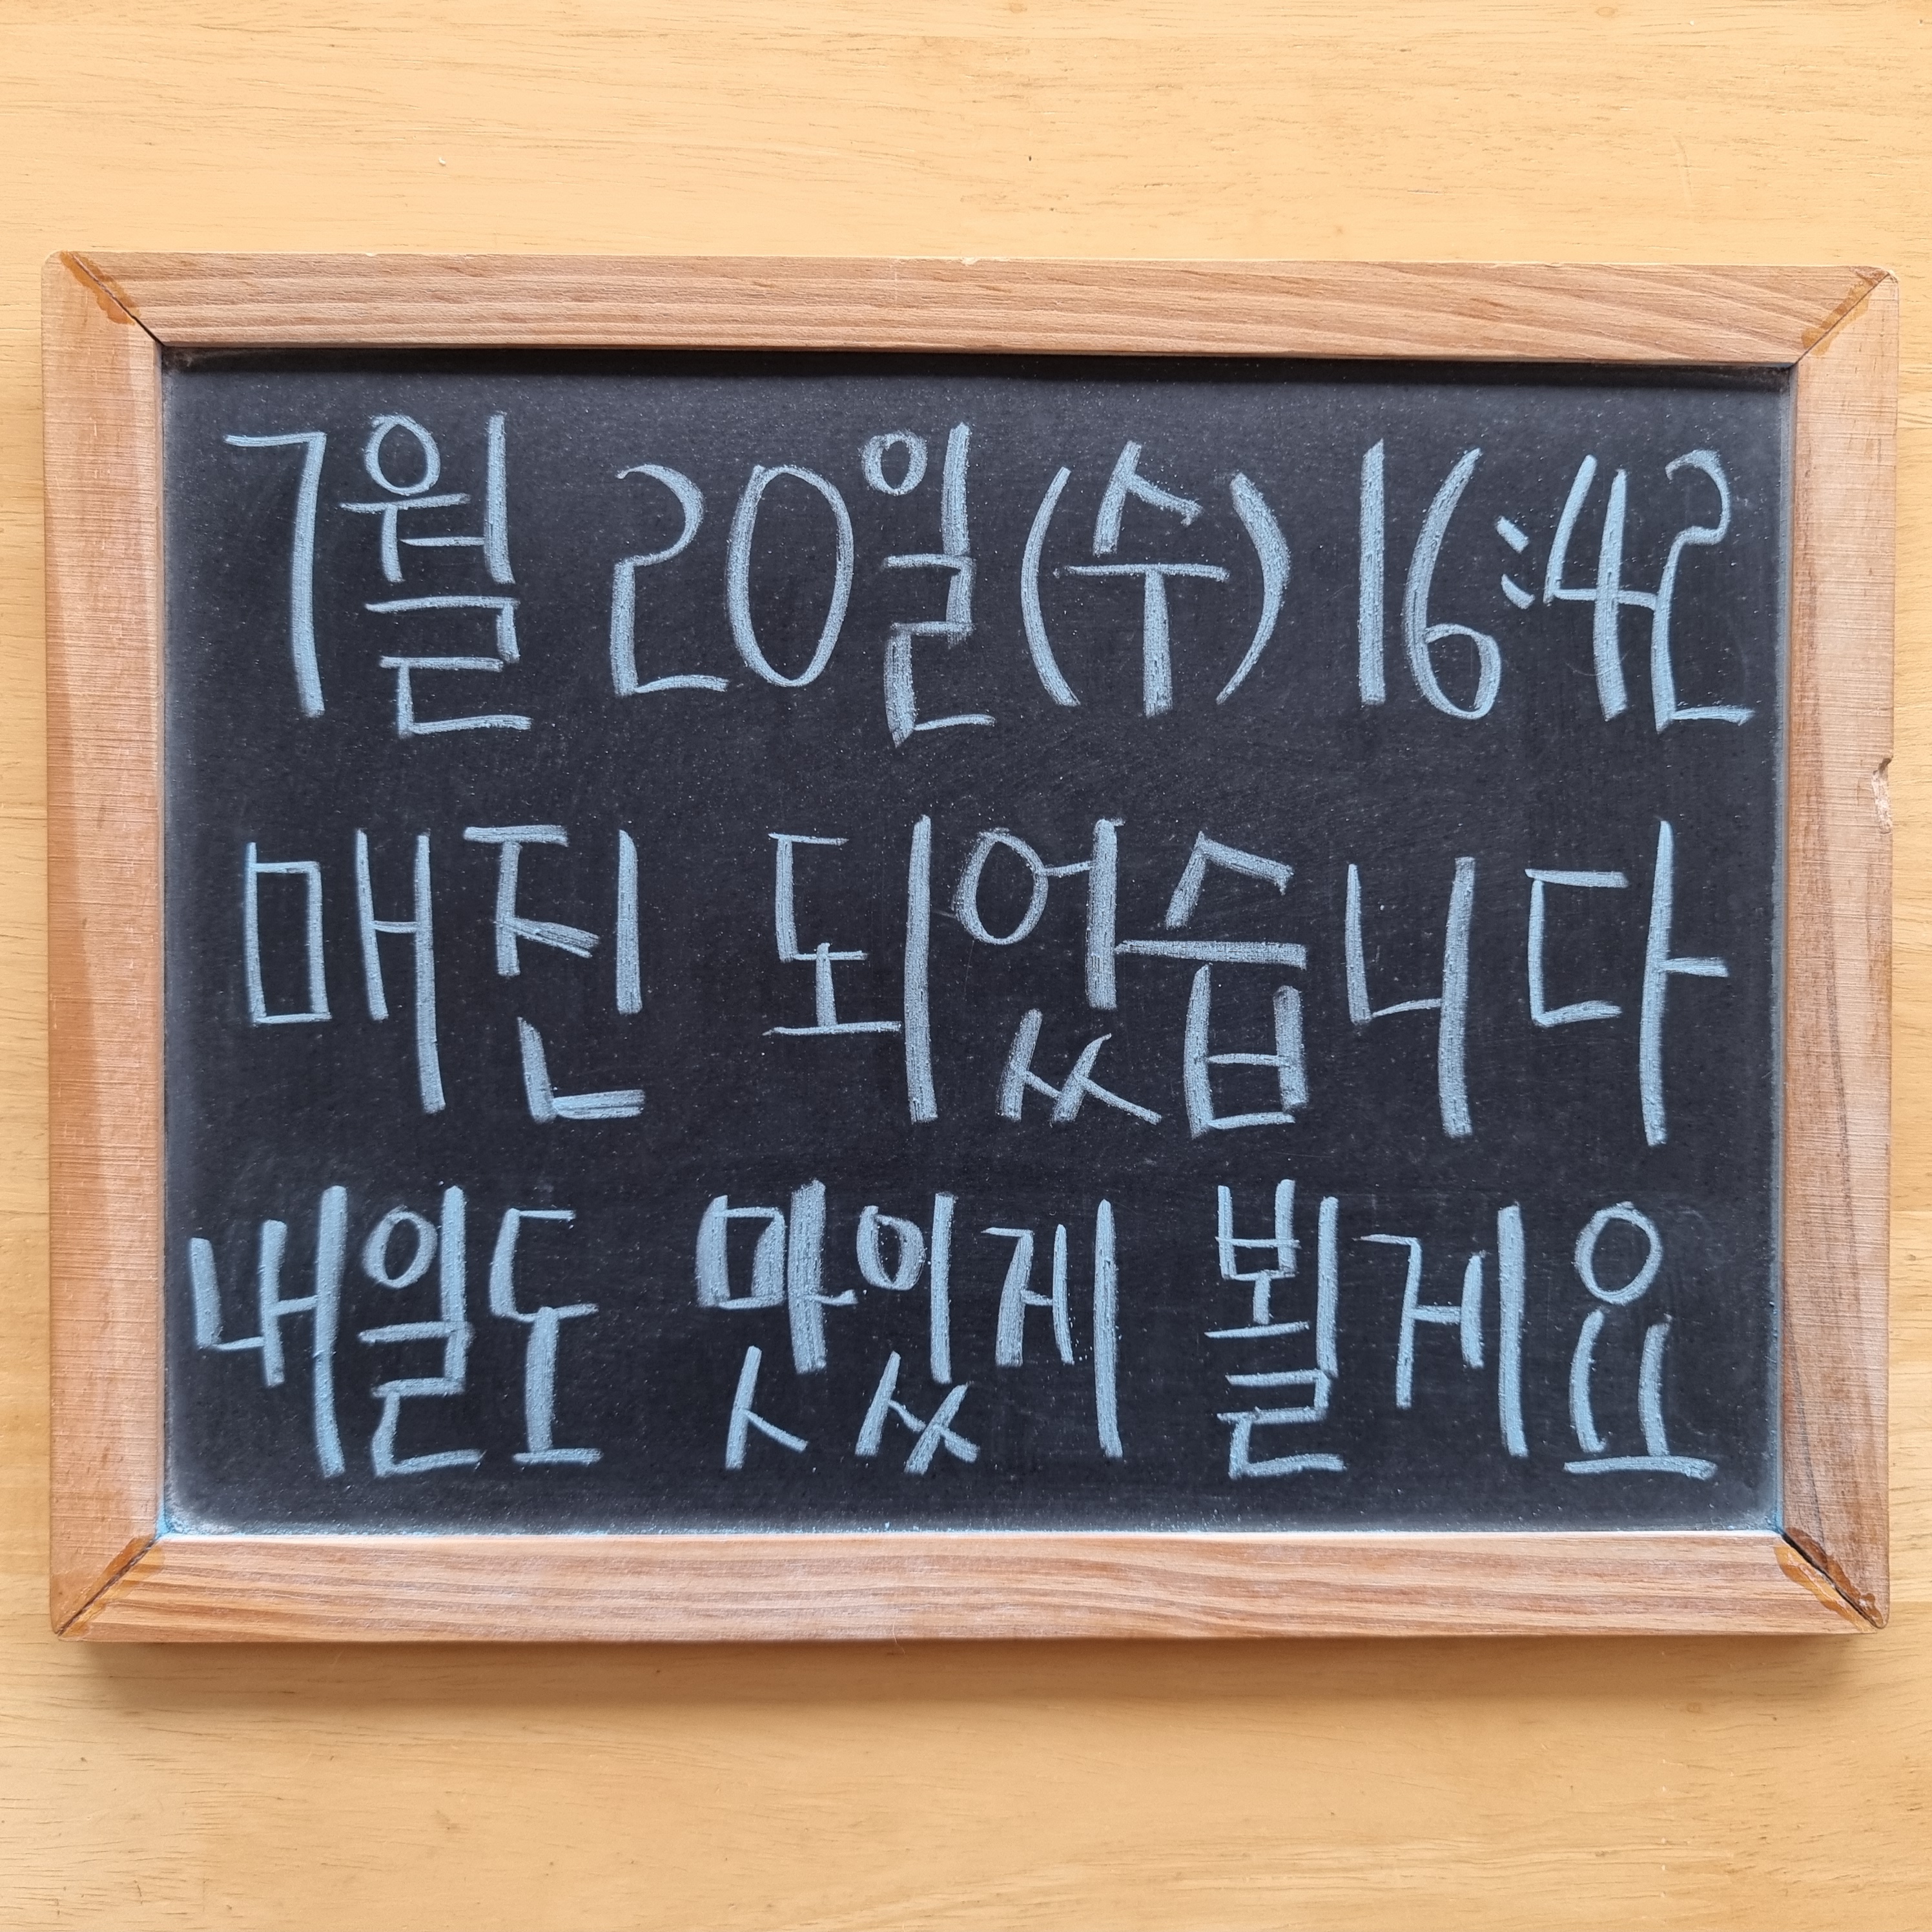 7월 20일(수) 16:42
매진 되었습니다
내일도 맛있게 뵐게요